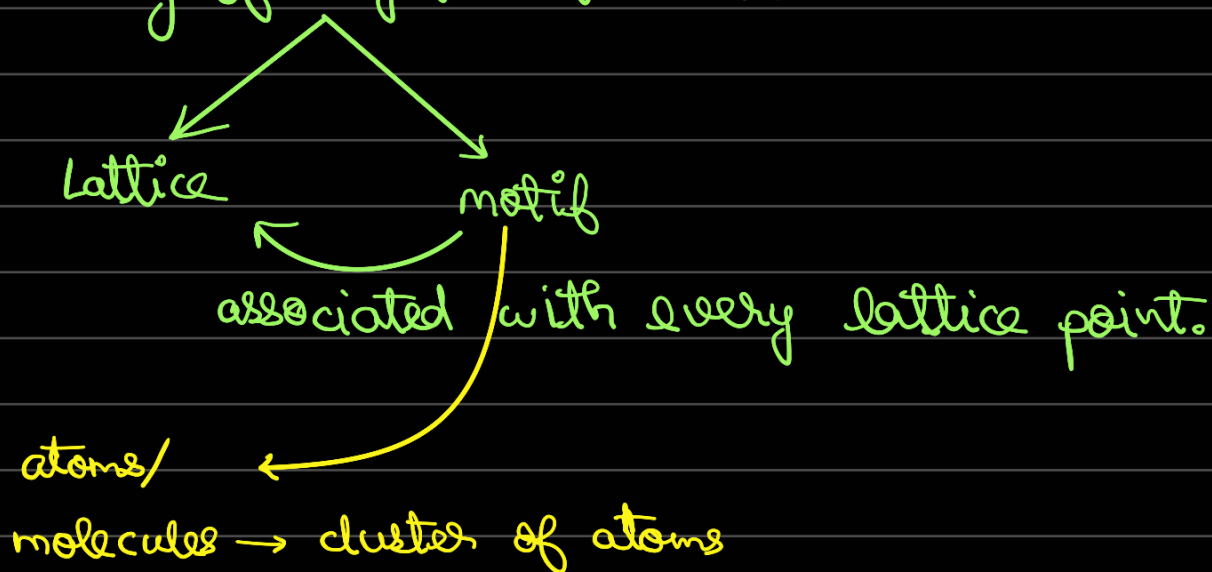 Lattice motif
associated with every lattice point.
atoms/
molecules → cluster of atoms